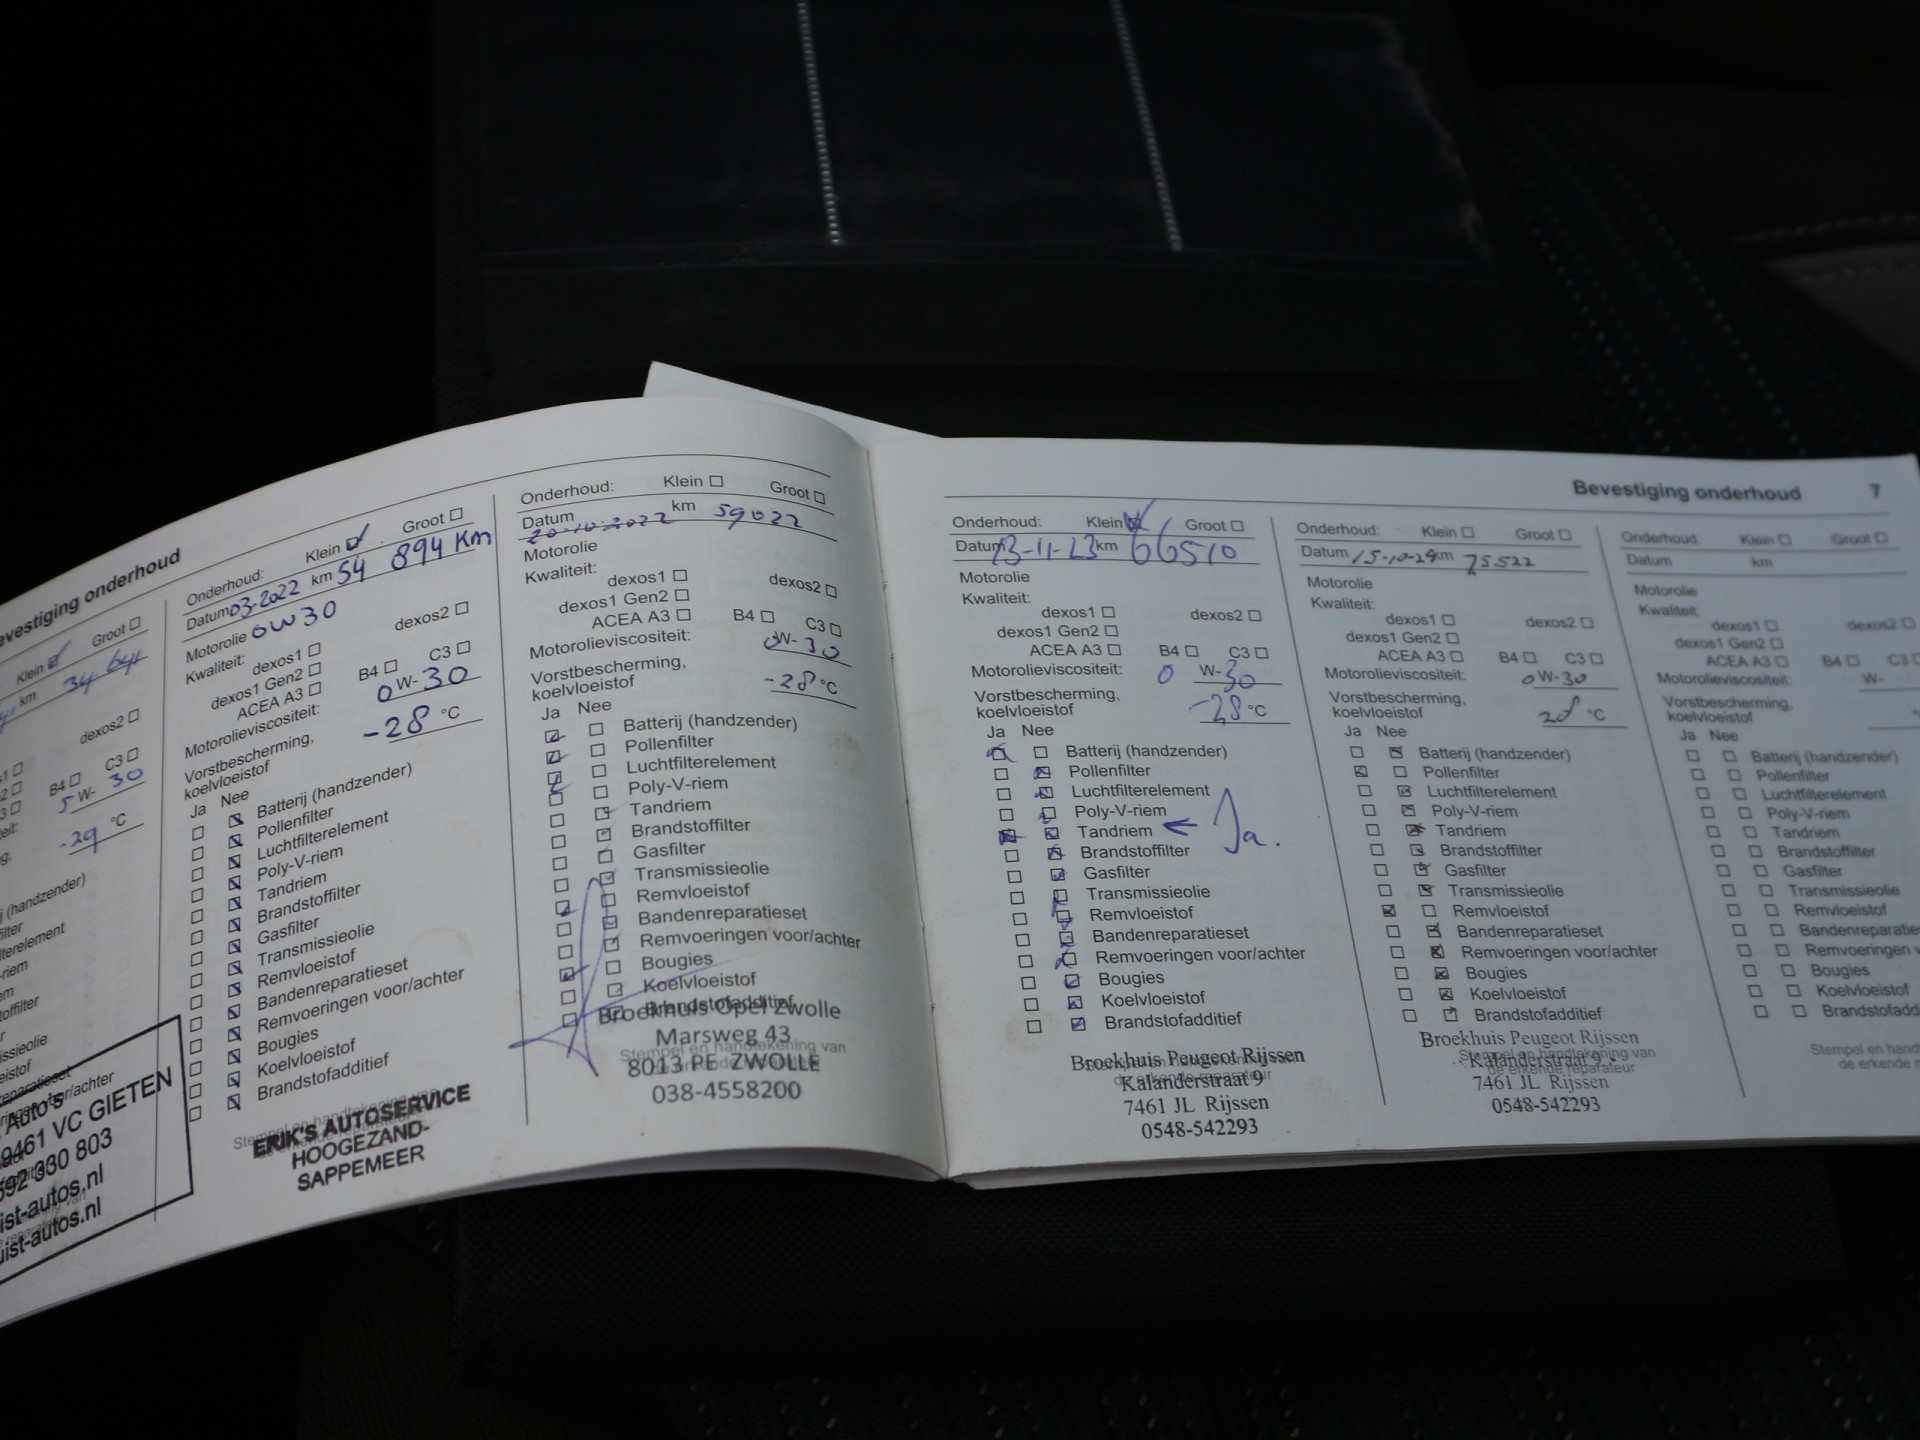 Bevestiging onderhoud
Klein Groot
km 34 641
dexos2
B4 C3
5 W- 30
-29 °C
(handzender)
ringen voor/achter
Auto's
9461 VC GIETEN
592 330 803
ist-autos.nl
uist-autos.nl
Onderhoud: Klein Groot
Datum 03-2022 km 54 894 Km
Motorolie 0W30
Kwaliteit:
dexos1 dexos2
dexos1 Gen2
ACEA A3 B4 C3
Motorolieviscositeit: 0 W- 30
Vorstbescherming,
koelvloeistof -28 °C
Ja Nee
Batterij (handzender)
Pollenfilter
Luchtfilterelement
Poly-V-riem
Tandriem
Brandstoffilter
Gasfilter
Transmissieolie
Remvloeistof
Bandenreparatieset
Remvoeringen voor/achter
Bougies
Koelvloeistof
Brandstofadditief
ERIK'S AUTOSERVICE
HOOGEZAND-
SAPPEMEER
Onderhoud: Klein Groot
Datum 20-10-2022 km 59022
Motorolie
Kwaliteit:
dexos1 dexos2
dexos1 Gen2
ACEA A3 B4 C3
Motorolieviscositeit: 0W-30
Vorstbescherming,
koelvloeistof -28 °C
Ja Nee
Batterij (handzender)
Pollenfilter
Luchtfilterelement
Poly-V-riem
Tandriem
Brandstoffilter
Gasfilter
Transmissieolie
Remvloeistof
Bandenreparatieset
Remvoeringen voor/achter
Bougies
Koelvloeistof
Brandstofadditief
Broekhuis Opel Zwolle
Marsweg 43
Stempel en handtekening van
8013 PE ZWOLLE
038-4558200
Bevestiging onderhoud 7
Onderhoud: Klein Groot
Datum 13-11-23 km 66510
Motorolie
Kwaliteit:
dexos1 dexos2
dexos1 Gen2
ACEA A3 B4 C3
Motorolieviscositeit: 0 W-30
Vorstbescherming,
koelvloeistof -28 °C
Ja Nee
Batterij (handzender)
Pollenfilter
Luchtfilterelement
Poly-V-riem
Tandriem ← Ja.
Brandstoffilter
Gasfilter
Transmissieolie
Remvloeistof
Bandenreparatieset
Remvoeringen voor/achter
Bougies
Koelvloeistof
Brandstofadditief
Broekhuis Peugeot Rijssen
Kalanderstraat 9
7461 JL Rijssen
0548-542293
Onderhoud: Klein Groot
Datum 15-10-24 km 75.522
Motorolie
Kwaliteit:
dexos1 dexos2
dexos1 Gen2
ACEA A3 B4 C3
Motorolieviscositeit: 0 W-30
Vorstbescherming,
koelvloeistof 28 °C
Ja Nee
Batterij (handzender)
Pollenfilter
Luchtfilterelement
Poly-V-riem
Tandriem
Brandstoffilter
Gasfilter
Transmissieolie
Remvloeistof
Bandenreparatieset
Remvoeringen voor/achter
Bougies
Koelvloeistof
Brandstofadditief
Broekhuis Peugeot Rijssen
Stempel en handtekening van
Kalanderstraat 9
de erkende reparateur
7461 JL Rijssen
0548-542293
Onderhoud: Klein Groot
Datum km
Motorolie
Kwaliteit:
dexos1 dexos2
dexos1 Gen2
ACEA A3 B4 C3
Motorolieviscositeit: W-
Vorstbescherming,
koelvloeistof
Ja Nee
Batterij (handzender)
Pollenfilter
Luchtfilterelement
Poly-V-riem
Tandriem
Brandstoffilter
Gasfilter
Transmissieolie
Remvloeistof
Bandenreparatie
Remvoeringen v
Bougies
Koelvloeistof
Brandstofadd
Stempel en hand
de erkende r